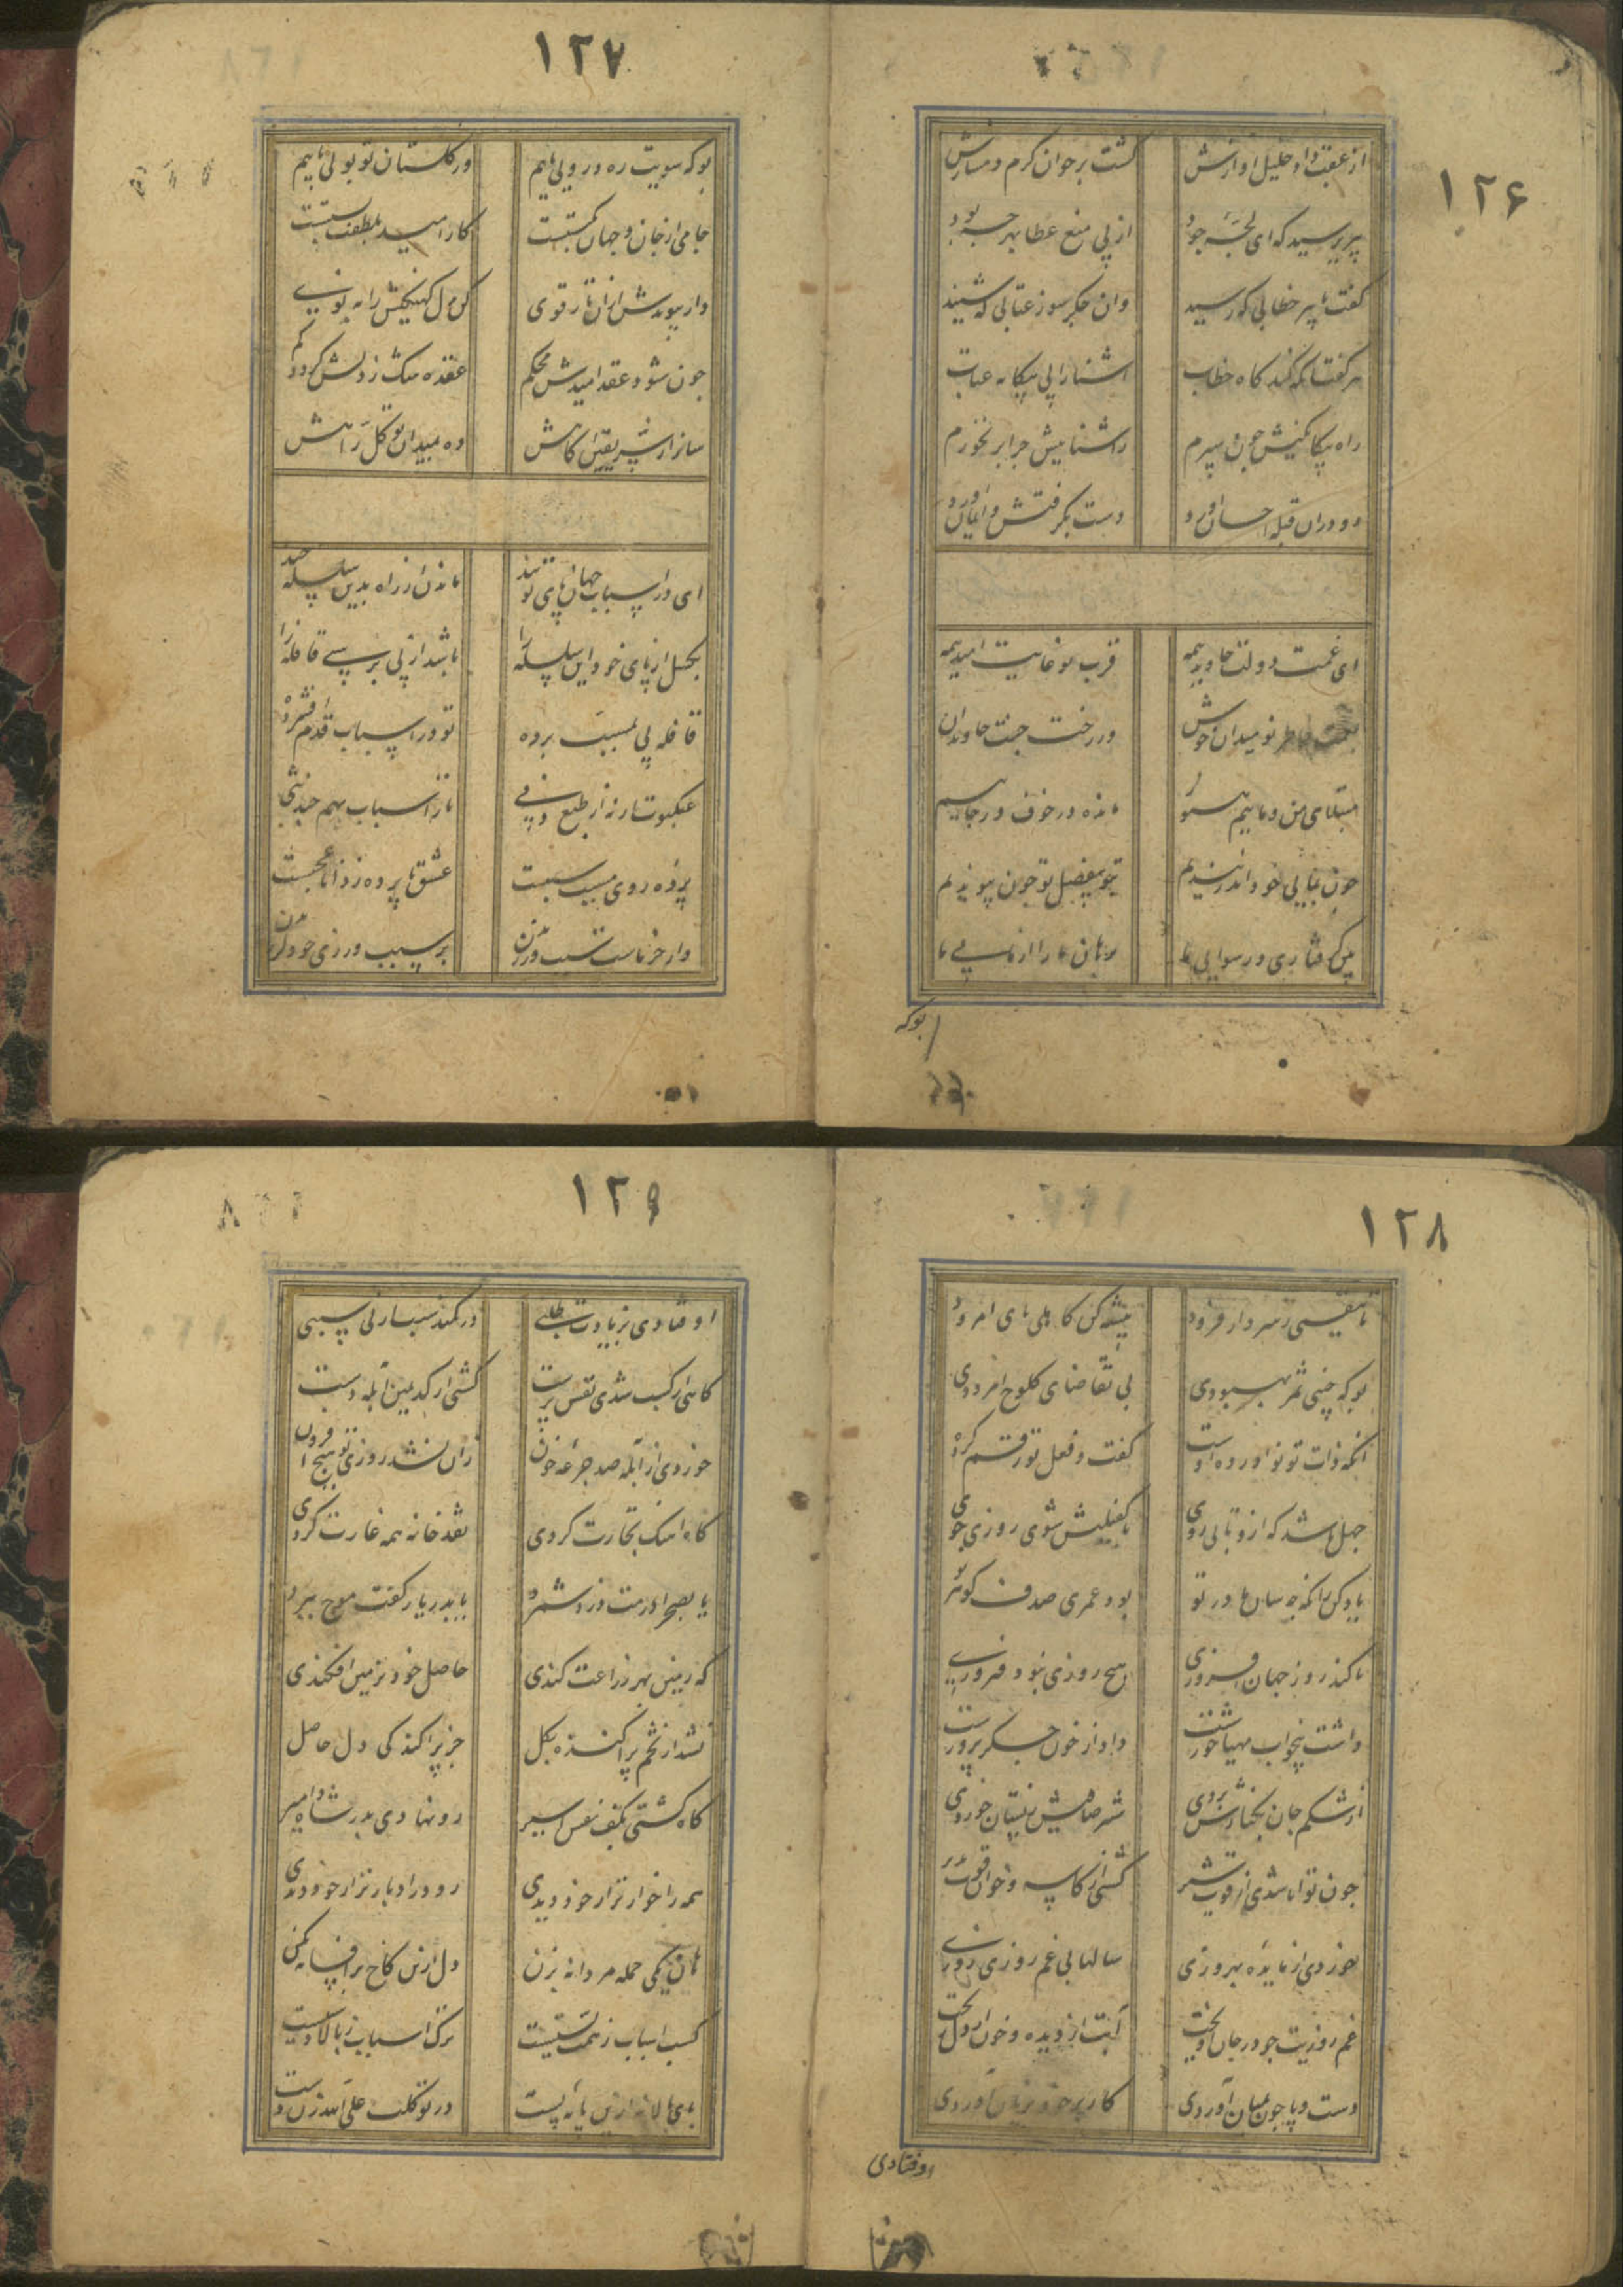 ۱۲۶
از عقبش داد خلیل آوازش
گشت بر خوان کرم دمسازش
پیر پرسید که ای لجه جود
از پی منع عطا بهر چه بود
گفت با پیر خطابی که رسید
وان جگرسوز عتابی که شنید
پیر گفتا که کند گاه خطاب
آشنا را پی بیگانه عتاب
راه بیگانگیش چون سپرم
ز آشناییش چرا بر نخورم
رو در آن قبله احسان آورد
دست بگرفتش و ایمان آورد
ای غمت دولت جاوید همه
قرب تو غایت امید همه
خاطر نومیدان خوش
ور رخت جنت جاویدان
مبتلای من و ماییم هنوز
مانده در خوف و رجاییم
چون نیایی خود اندر بندیم
تو بفضل تو چون پیوندیم
بین گرفتاری و رسوایی ما
برهان ما را از مایی ما
بوکه
۱۲۷
بو که سویت ره درویی یابیم
ور گلستان تو بویی یابیم
جامی از جان و جهان بگسستت
کار امید بلطفت بستت
دار پیوندش ازان تار قوی
کن دل کهنه‌گیش را به نوی
چون شود عقد امیدش محکم
عقده شک ز دلش گردد کم
ساز از سر یقین آگاهش
ده بمیدان توکل راهش
ای در اسباب جهان پای تو بند
ماندن از راه بدین سلسله چند
بگسل از پای خود این سلسله را
باشد از پی برسی قافله را
قافله پی بمسبب برده
تو در اسباب قدم افشرده
عنکبوت ار نه از طبع دنی
تار اسباب بهم چند تنی
پرده روی مسبب سببست
عشق با پرده ز دانا عجبست
دار خرماست سبب ورزیدن
بر سبب ورزی خود لرزیدن
۱۲۸
تا مقیمی ز سر دار فرود
پیشه کن کاهلی پای امرود
بو که چینی ثمر بهبودی
بی تقاضای کلوخ امرودی
آنکه ذات تو نو آورده اوست
گفت و فعل تو رقم کرده اوست
جهل باشد که ازو تابی روی
با کفیلیش شوی روزی جوی
یاد کن زانکه چه سان مادر تو
بود عمری صدف گوهر تو
تا کند روز جهان افروزی
هیچ روزی نبود فیروزی
داشت بیخواب مهیا خورشت
داد از خون جگر پرورشت
از شکم جان بکنارش بردی
شیر صافیش ز پستان خوردی
چون توانا شدی از قوت شیر
گشتی از کاسه و خوان قوت پذیر
خوردی از مایده بهروزی
سالها بی غم روزی روزی
غم روزیت چو در جان آویخت
آبت از دیده و خون از دل ریخت
دست و پا چون بمیان آوردی
کار بر خود بزیان آوردی
اوفتادی
۱۲۹
اوفتادی بزیادت طلبی
در کمند سبب از بی سببی
گاهی از کسب شدی نفس پرست
گشتی از کد یمین آبله دست
خوردی از آبله صد جرعه خون
زان نشد روزی تو هیچ افزون
گاه آهنگ تجارت کردی
نقد خانه همه غارت کردی
یا بصحرا رمت دزد شمرد
یا بدریا ز کفت موج ببرد
گه زمین بهر زراعت کندی
حاصل خود بزمین افکندی
نشد از تخم پراکنده بگل
جز پراکندگی دل حاصل
گاه گشتی بکف نفس اسیر
رو نهادی بدر شاه و امیر
همه را خوارتر از خود دیدی
رو در ادبارتر از خود دیدی
هان یکی حمله مردانه بزن
دل ازین کاخ پر افسانه بکن
کسب اسباب ز همت پستیست
ترک اسباب ز بالادستیست
پای بالا نه ازین پایه پست
در توکلت علی الله زن دست